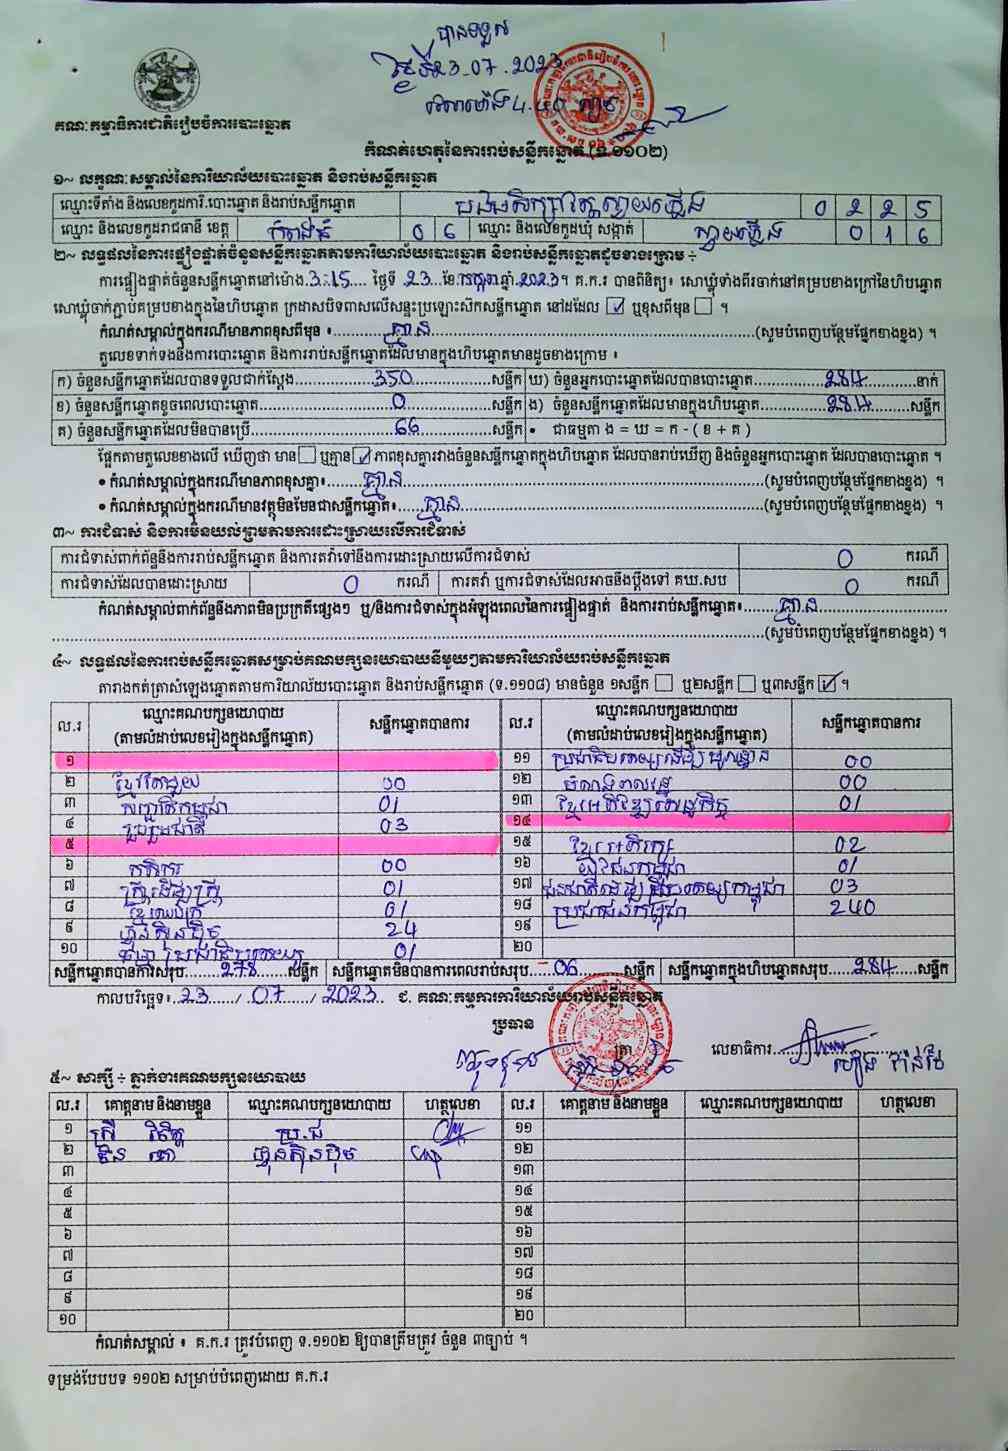 បានទទួល
ថ្ងៃទី23-07-2023
វេលាម៉ោង4.40 ល្ងាច
គណៈកម្មាធិការជាតិរៀបចំការបោះឆ្នោត
កំណត់ហេតុនៃការរាប់សន្លឹកឆ្នោត (ទ.១១០២)
១~ លក្ខណៈសម្គាល់នៃការិយាល័យបោះឆ្នោត និងរាប់សន្លឹកឆ្នោត
ឈ្មោះទីតាំង និងលេខកូដការិ.បោះឆ្នោត និងរាប់សន្លឹកឆ្នោត 0 2 2 5
ឈ្មោះ និងលេខកូដរាជធានី ខេត្ត កំពង់ធំ 0 6 ឈ្មោះ និងលេខកូដឃុំ សង្កាត់ ស្វាយភ្លើង 0 1 6
២~ លទ្ធផលនៃការផ្ទៀងផ្ទាត់ចំនួនសន្លឹកឆ្នោតតាមការិយាល័យបោះឆ្នោត និងរាប់សន្លឹកឆ្នោតដូចខាងក្រោម ៖
ការផ្ទៀងផ្ទាត់ចំនួនសន្លឹកឆ្នោតនៅម៉ោង.3:15.... ថ្ងៃទី .23...ខែ.កក្កដា.ឆ្នាំ.2023។ គ.ក.រ បានពិនិត្យ៖ សោឃ្លុំទាំងពីរចាក់នៅគម្របខាងក្រៅនៃហិបឆ្នោត
សោឃ្លុំចាក់ភ្ជាប់គម្របខាងក្នុងនៃហិបឆ្នោត ក្រដាសបិទពាសលើសន្ទះប្រឡោះសិកសន្លឹកឆ្នោត នៅដដែល ☑ ឬខុសពីមុន ☐ ។
កំណត់សម្គាល់ក្នុងករណីមានភាពខុសពីមុន ៖..........គ្មាន..........(សូមបំពេញបន្ថែមផ្នែកខាងខ្នង) ។
តួលេខទាក់ទងនឹងការបោះឆ្នោត និងការរាប់សន្លឹកឆ្នោតដែលមានក្នុងហិបឆ្នោតមានដូចខាងក្រោម ៖
ក) ចំនួនសន្លឹកឆ្នោតដែលបានទទួលជាក់ស្តែង..........350..........សន្លឹក ឃ) ចំនួនអ្នកបោះឆ្នោតដែលបានបោះឆ្នោត..........284..........នាក់
ខ) ចំនួនសន្លឹកឆ្នោតខូចពេលបោះឆ្នោត..........0..........សន្លឹក ង) ចំនួនសន្លឹកឆ្នោតដែលមានក្នុងហិបឆ្នោត..........284..........សន្លឹក
គ) ចំនួនសន្លឹកឆ្នោតដែលមិនបានប្រើ..........66..........សន្លឹក • ជាធម្មតា ង = ឃ = ក - ( ខ + គ )
ផ្អែកតាមតួលេខខាងលើ ឃើញថា មាន ☐ ឬគ្មាន ☑ ភាពខុសគ្នារវាងចំនួនសន្លឹកឆ្នោតក្នុងហិបឆ្នោត ដែលបានរាប់ឃើញ និងចំនួនអ្នកបោះឆ្នោត ដែលបានបោះឆ្នោត ។
• កំណត់សម្គាល់ក្នុងករណីមានភាពខុសគ្នា៖..........គ្មាន..........(សូមបំពេញបន្ថែមផ្នែកខាងខ្នង) ។
• កំណត់សម្គាល់ក្នុងករណីមានវត្ថុមិនមែនជាសន្លឹកឆ្នោត៖..........គ្មាន..........(សូមបំពេញបន្ថែមផ្នែកខាងខ្នង) ។
៣~ ការជំទាស់ និងការមិនយល់ព្រមតាមការដោះស្រាយលើការជំទាស់
ការជំទាស់ពាក់ព័ន្ធនឹងការរាប់សន្លឹកឆ្នោត និងការតវ៉ាទៅនឹងការដោះស្រាយលើការជំទាស់ 0 ករណី
ការជំទាស់ដែលបានដោះស្រាយ 0 ករណី ការតវ៉ា ឬការជំទាស់ដែលអាចនឹងប្តឹងទៅ គឃ.សប 0 ករណី
កំណត់សម្គាល់ពាក់ព័ន្ធនឹងភាពមិនប្រក្រតីផ្សេងៗ ឬ/និងការជំទាស់ក្នុងអំឡុងពេលនៃការផ្ទៀងផ្ទាត់ និងការរាប់សន្លឹកឆ្នោត៖..........គ្មាន..........
..........(សូមបំពេញបន្ថែមផ្នែកខាងខ្នង) ។
៤~ លទ្ធផលនៃការរាប់សន្លឹកឆ្នោតសម្រាប់គណបក្សនយោបាយនីមួយៗតាមការិយាល័យរាប់សន្លឹកឆ្នោត
តារាងកត់ត្រាសំឡេងឆ្នោតតាមការិយាល័យបោះឆ្នោត និងរាប់សន្លឹកឆ្នោត (ទ.១១០៨) មានចំនួន ១សន្លឹក ☐ ឬ២សន្លឹក ☐ ឬ៣សន្លឹក ☑ ។
ល.រ ឈ្មោះគណបក្សនយោបាយ (តាមលំដាប់លេខរៀងក្នុងសន្លឹកឆ្នោត) សន្លឹកឆ្នោតបានការ ល.រ ឈ្មោះគណបក្សនយោបាយ (តាមលំដាប់លេខរៀងក្នុងសន្លឹកឆ្នោត) សន្លឹកឆ្នោតបានការ
១ ១១ 00
២ ខ្មែរតែមួយ 00 ១២ 00
៣ សញ្ជាតិកម្ពុជា 01 ១៣ ខ្មែរអភិវឌ្ឍសេដ្ឋកិច្ច 01
៤ រួបរួមជាតិ 03 ១៤
៥ ១៥ ខ្មែរអភិរក្ស 02
៦ កសិករ 00 ១៦ យុវជនកម្ពុជា 01
៧ ស្ត្រីដើម្បីស្ត្រី 01 ១៧ 03
៨ 01 ១៨ ប្រជាជនកម្ពុជា 240
៩ ហ្វ៊ុនស៊ិនប៉ិច 24 ១៩
១០ 01 ២០
សន្លឹកឆ្នោតបានការសរុប.......278.......សន្លឹក សន្លឹកឆ្នោតមិនបានការពេលរាប់សរុប.....06.......សន្លឹក សន្លឹកឆ្នោតក្នុងហិបឆ្នោតសរុប.....284.....សន្លឹក
កាលបរិច្ឆេទ៖..23....../..07....../..2023.. ជ. គណៈកម្មការការិយាល័យរាប់សន្លឹកឆ្នោត
ប្រធាន
ត្រា
លេខាធិការ
៥~ សាក្សី ៖ ភ្នាក់ងារគណបក្សនយោបាយ
ល.រ គោត្តនាម និងនាមខ្លួន ឈ្មោះគណបក្សនយោបាយ ហត្ថលេខា ល.រ គោត្តនាម និងនាមខ្លួន ឈ្មោះគណបក្សនយោបាយ ហត្ថលេខា
១ ប្រ.ជ ១១
២ ហ្វ៊ុនស៊ិនប៉ិច ១២
៣ ១៣
៤ ១៤
៥ ១៥
៦ ១៦
៧ ១៧
៨ ១៨
៩ ១៩
១០ ២០
កំណត់សម្គាល់ ៖ គ.ក.រ ត្រូវបំពេញ ទ.១១០២ ឱ្យបានត្រឹមត្រូវ ចំនួន ៣ច្បាប់ ។
ទម្រង់បែបបទ ១១០២ សម្រាប់បំពេញដោយ គ.ក.រ